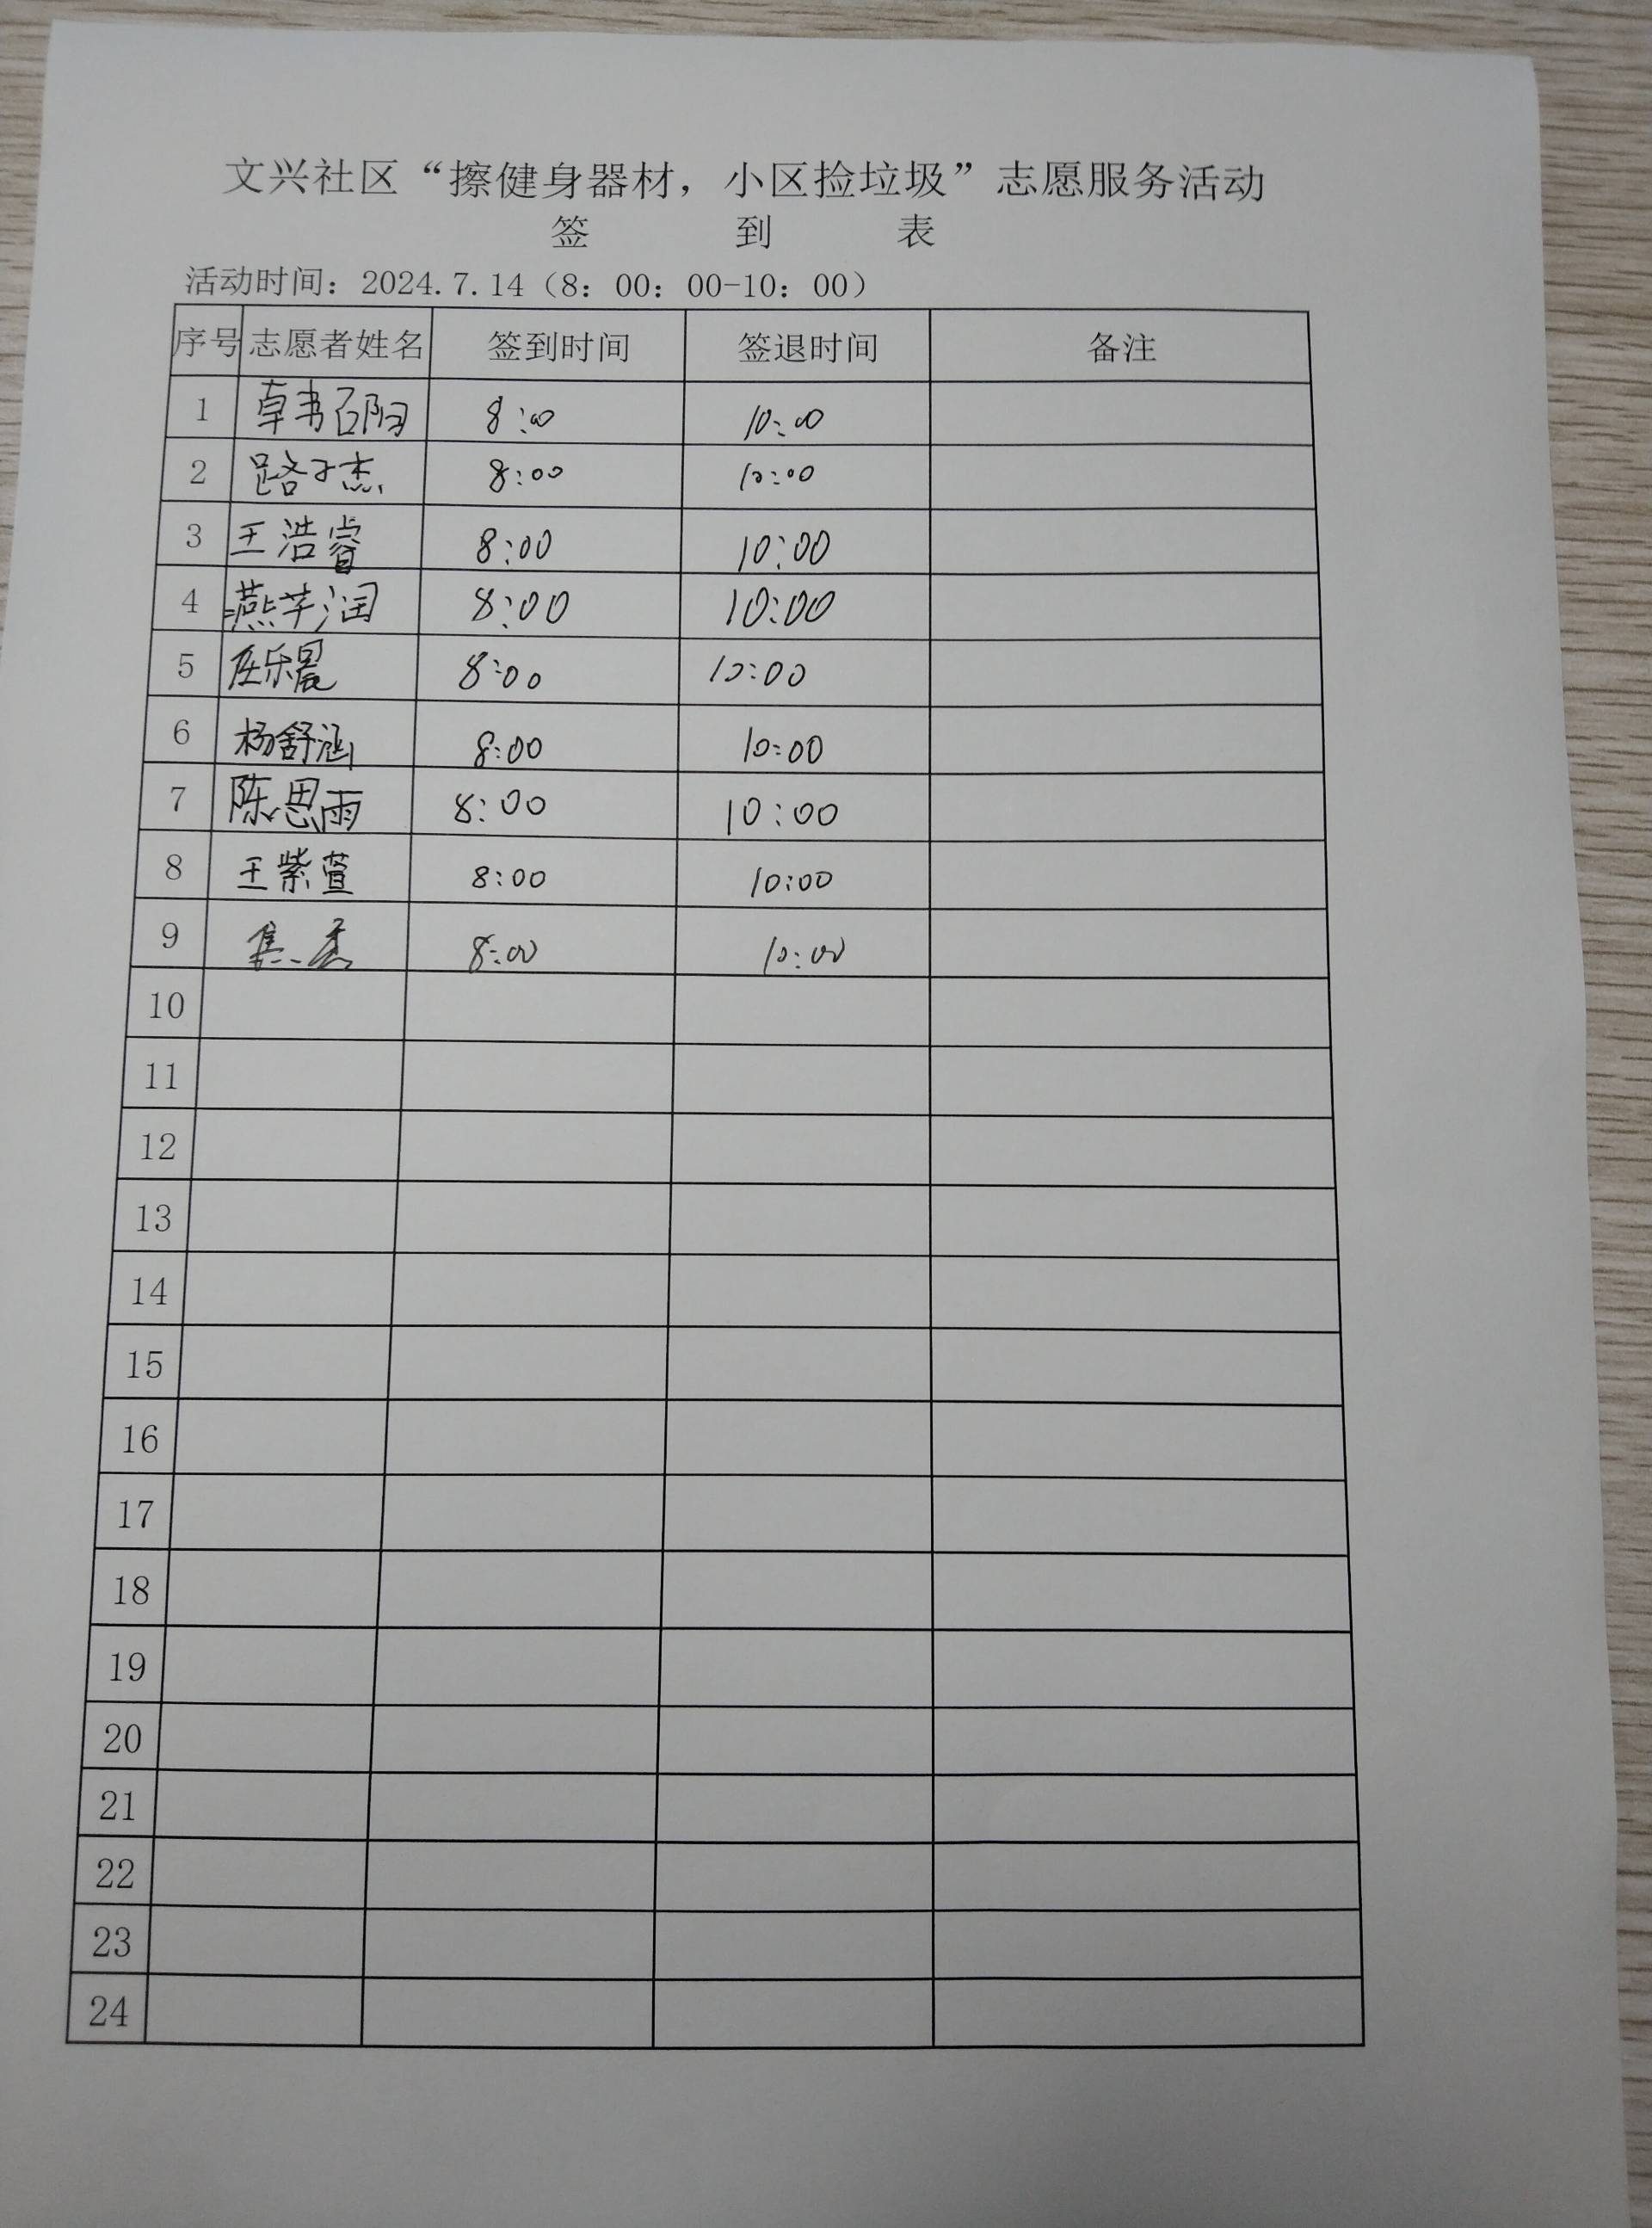 文兴社区“擦健身器材，小区捡垃圾”志愿服务活动
签 到 表
活动时间：2024.7.14（8：00：00-10：00）
序号 志愿者姓名 签到时间 签退时间 备注
1 8:00 10:00
2 路子杰 8:00 10:00
3 王浩睿 8:00 10:00
4 燕芊润 8:00 10:00
5 庄乐晨 8:00 10:00
6 杨舒涵 8:00 10:00
7 陈思雨 8:00 10:00
8 王紫萱 8:00 10:00
9 8:00 10:00
10
11
12
13
14
15
16
17
18
19
20
21
22
23
24